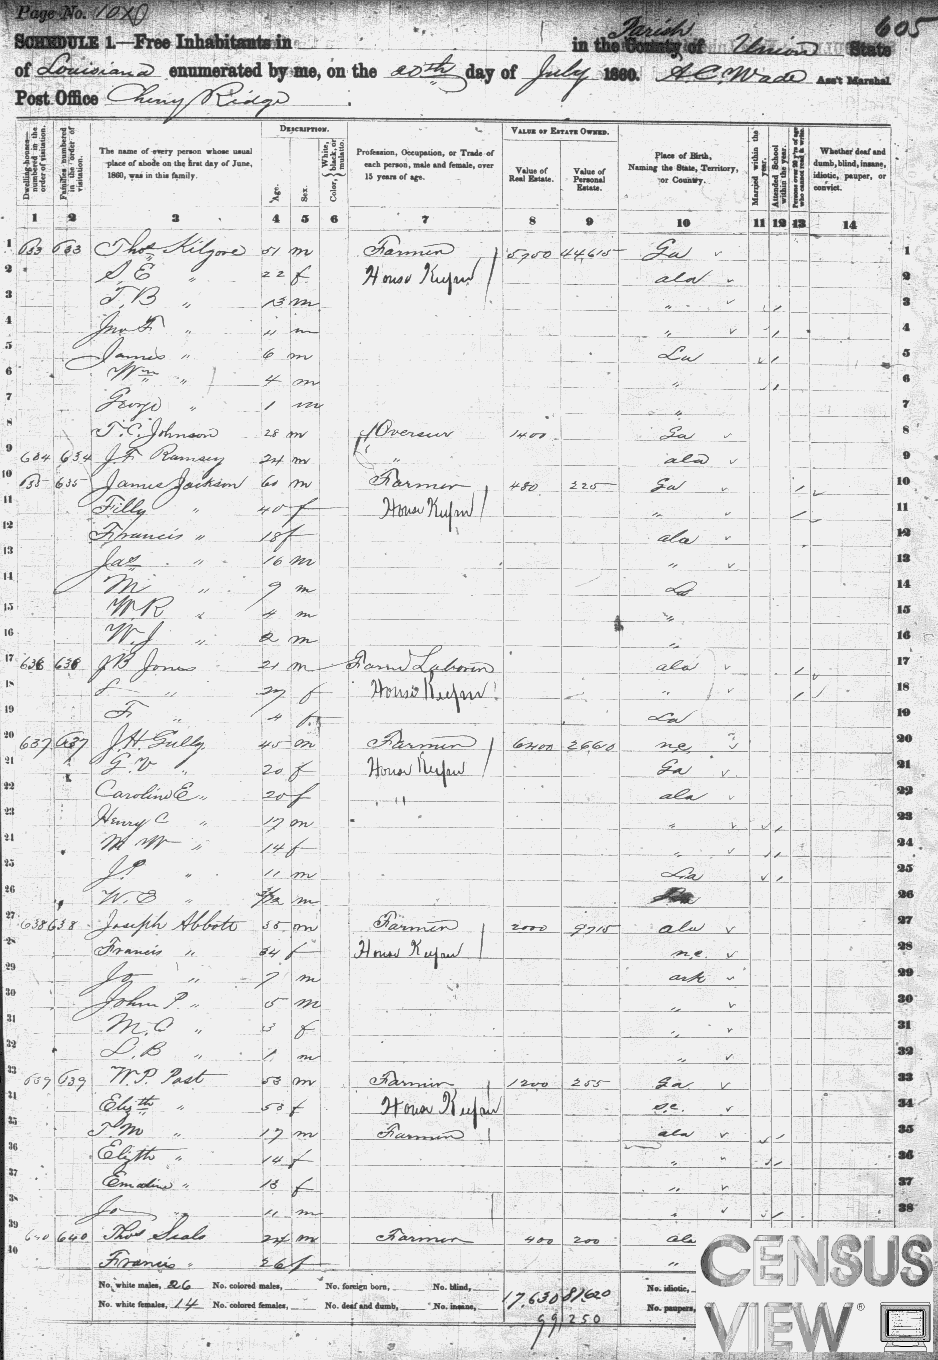 Page No. 605
SCHEDULE 1.—Free Inhabitants in in the Parish County of Union State
of Louisiana enumerated by me, on the 20th day of July 1860. A C Wade Ass't Marshal
Post Office Cherry Ridge
Dwelling-houses—numbered in the order of visitation.
Families numbered in the order of visitation.
The name of every person whose usual place of abode on the first day of June, 1860, was in this family.
DESCRIPTION.
Age.
Sex.
Color, White, black, or mulatto.
Profession, Occupation, or Trade of each person, male and female, over 15 years of age.
VALUE OF ESTATE OWNED.
Value of Real Estate.
Value of Personal Estate.
Place of Birth, Naming the State, Territory, or Country.
Married within the year.
Attended School within the year.
Persons over 20 y'rs of age who cannot read & write.
Whether deaf and dumb, blind, insane, idiotic, pauper, or convict.
1 2 3 4 5 6 7 8 9 10 11 12 13 14
1 633 633 Thos Kilgore 51 m Farmer 44615 Ga 1
2 S. E " 22 f House Keeper ala 2
3 T. B " 13 m " 3
4 Jno F " 11 m " 4
5 James " 6 m La 5
6 Wm " 4 m " 6
7 George " 1 m " 7
8 T. C. Johnson 28 m Overseer 1400 Ga 8
9 634 634 J. F. Ramsey 24 m " ala 9
10 635 635 James Jackson 60 m Farmer 480 225 Ga 10
11 Filly " 40 f House Keeper " 11
12 Francis " 18 f ala 12
13 Jas " 16 m " 13
14 M " 9 m La 14
15 W. R " 4 m " 15
16 W. J " 2 m " 16
17 636 636 J B Jones 21 m Farm Laborer ala 17
18 " 27 f House Keeper " 18
19 F " 4 f La 19
20 637 637 J. H. Gully 45 m Farmer 6400 2660 n.c. 20
21 G. V " 20 f House Keeper Ga 21
22 Caroline E " 20 f " ala 22
23 Henry C " 17 m " 23
24 M W " 14 f " 24
25 J. P " 11 m La 25
26 W. E " m 26
27 638 638 Joseph Abbott 35 m Farmer 2000 9715 ala 27
28 Francis " 34 f House Keeper n.c. 28
29 Jo " 7 m ark 29
30 John P " 5 m " 30
31 M. " 3 f " 31
32 B " 1 m " 32
33 639 639 W. P. Post 53 m Farmer 1200 255 Ga 33
34 Elizth " 53 f House Keeper s.c. 34
35 T. M " 17 m Farmer ala 35
36 Elizth " 14 f " " 36
37 Emaline " 13 f " 37
38 Jo " 11 m " 38
39 640 640 Thos Seals 24 m Farmer 400 200 ala
40 Francis " 26 f "
No. white males, 26 No. colored males, No. foreign born, No. blind, 17,630 81,620 No. idiotic,
No. white females, 14 No. colored females, No. deaf and dumb, No. insane, No. paupers,
99,250
CENSUS VIEW ®